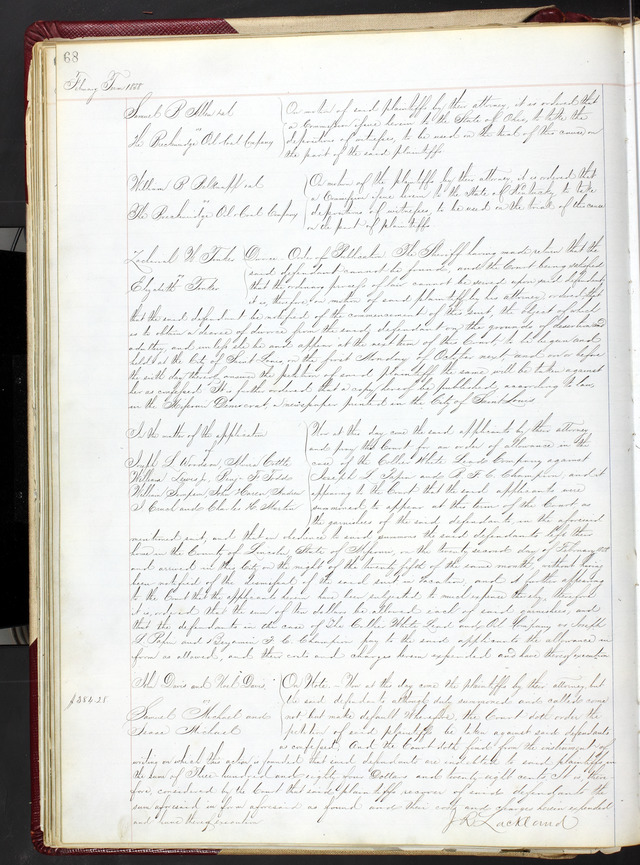 68
Term 1868
Samuel P
On motion of said plaintiffs by their attorney, it is ordered that
a Commission issue herein to the State of Ohio, to take the
vs Oil Coal Company
depositions of witnesses, to be used in the trial of this cause on
the part of the said plaintiffs
William P et al
On motion of the plaintiffs by their attorney, it is ordered that
a Commission issue herein to the State of Kentucky to take
vs Oil Coal Company
depositions of witnesses, to be used in the trial of this cause
on the part of plaintiffs
Order of Publication The Sheriff having made return that the
said defendant cannot be found, and the Court being satisfied
vs
that the ordinary process of law cannot be served upon said defendant
it is therefore on motion of said plaintiff by his attorney ordered that
that the said defendant be notified of the commencement of this suit, the object of which
is to obtain a decree of divorce from the said defendant on the grounds of desertion and
adultery, and unless she be and appear at the next term of this Court to be begun and
held at the City of Saint Louis on the first Monday of October next and on or before
the sixth day thereof, answer the petition of said plaintiff the same will be taken against
her as confessed. It is further ordered that a copy hereof be published, according to law
in the Missouri Democrat, a newspaper printed in the City of Saint Louis
In the matter of the application
Now at this day come the said applicants by their attorney
of
and pray this Court for an order of allowance in the
case of the Collier White Lead Company against
Joseph L and B F C Champion, and it
William Lewis
appearing to the Court that the said applicants were
William Simpson, John
summoned to appear at this term of the Court as
and Charles H Martin
the garnishees of the said defendants in the aforesaid
mentioned suit, and that in obedience to said summons the said defendants left their
home in the County of Lincoln, State of Missouri, on the twenty second day of February
and arrived in this City on the night of the twenty fifth of the same month, without having
been notified of the dismissal of the said, and it further appearing
to the Court that the applicants have been subjected to much expense thereby, therefore
it is ordered that the sum of ten dollars be allowed each of said garnishees, and
that the defendants in the case of The Collier White Lead and Oil Company vs Joseph
L and Benjamin F C Champion pay to the said applicants the allowance in
form as allowed, and their costs and charges herein expended and have thereof execution
John Davis and Davis
On Note. Now at this day come the plaintiffs by their attorney, but
$384.28
vs
the said defendants although duly summoned and called come
Samuel Michael and
not but make default Wherefore, the Court doth order the
Isaac Michael
petition of said plaintiffs to be taken against said defendants
as confessed. And the Court doth find from the instrument of
writing on which this action is founded that said defendants are indebted to said plaintiffs in
the sum of Three hundred and eighty four Dollars and twenty eight cents It is there
fore, considered by the Court that said plaintiffs recover of said defendants the
sum aforesaid in form aforesaid as found and their costs and charges herein expended
and have thereof execution
J R Lackland